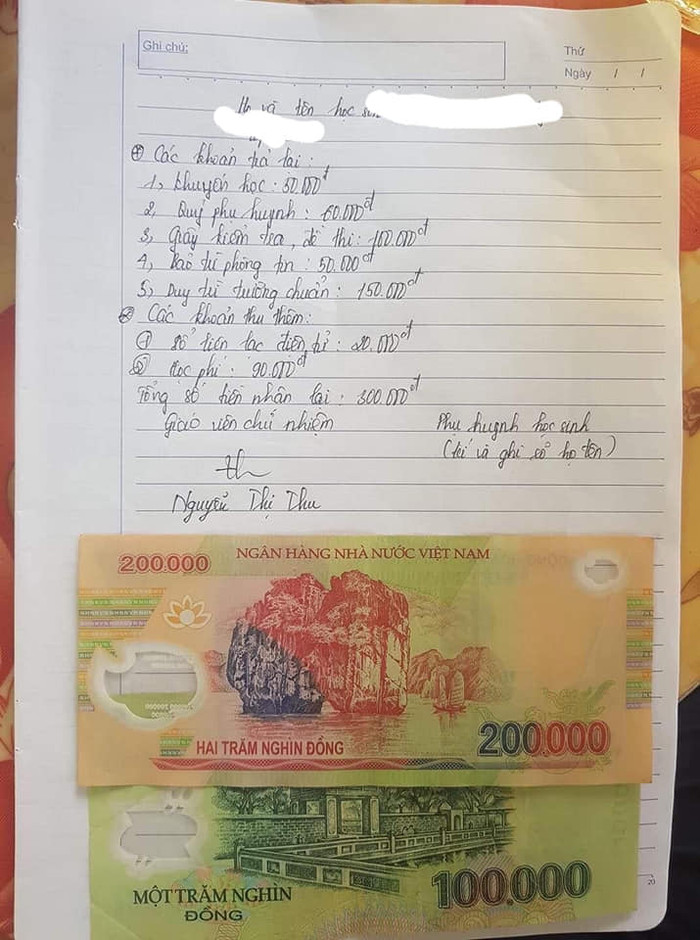 Ghi chú:
Thứ
Ngày / /
Họ và tên học sinh
⊕ Các khoản trả lại :
1, Khuyến học : 50.000đ
2, Quỹ phụ huynh : 60.000đ
3, Giấy kiểm tra, đề thi : 100.000đ
4, Bảo trì phòng tin : 50.000đ
5, Duy trì trường chuẩn : 150.000đ
⊕ Các khoản thu thêm:
① Sổ liên lạc điện tử : 20.000đ
② Học phí : 90.000đ
Tổng số tiền nhận lại : 300.000đ
Giáo viên chủ nhiệm
Phụ huynh học sinh
(kí và ghi số họ tên)
Nguyễn Thị Thu
200.000
NGÂN HÀNG NHÀ NƯỚC VIỆT NAM
HAI TRĂM NGHÌN ĐỒNG
200.000
MỘT TRĂM NGHÌN
ĐỒNG
100.000